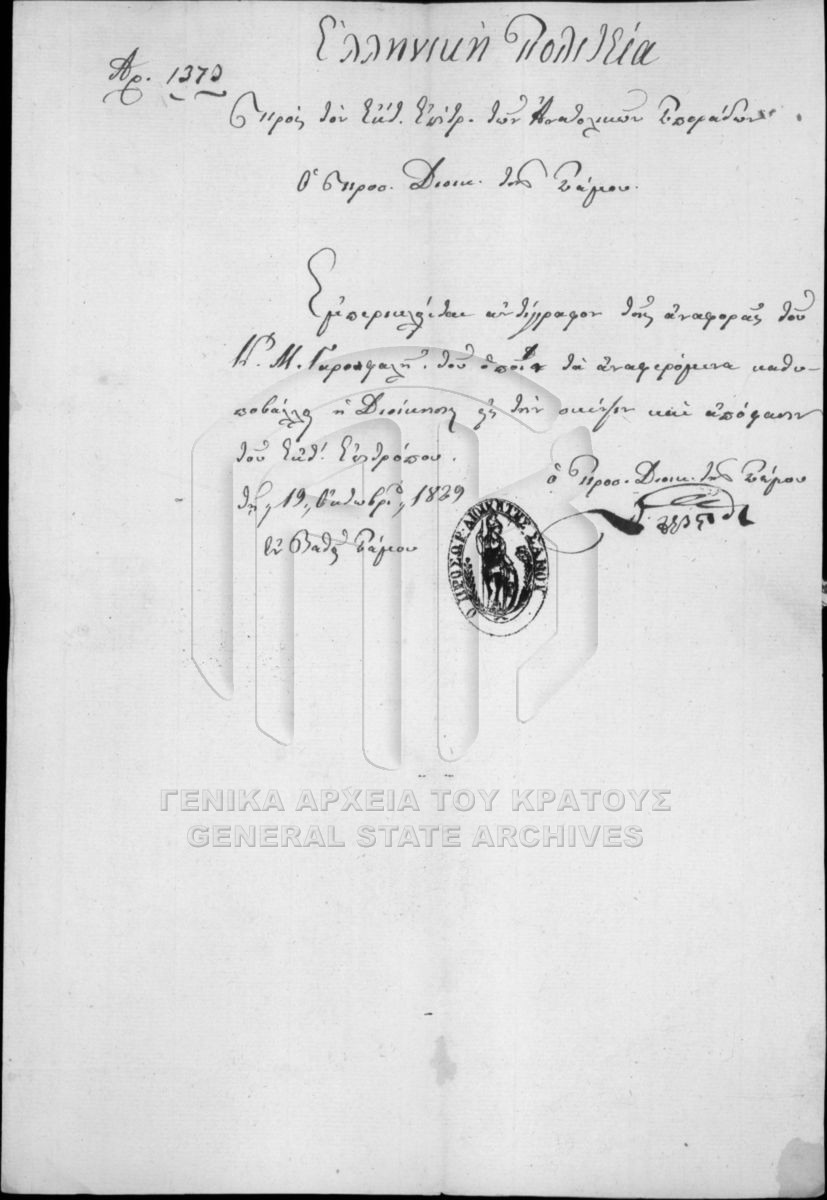 Ἑλληνική Πολιτεία
Ἀρ. 1373
Πρός τόν Ἐκτ. Ἐπίτρ. τῶν Ἀνατολικῶν Σποράδων
Ὁ Προσ. Διοικ. τῆς Σάμου.
Ἐμπερικλείεται ἀντίγραφον τῆς ἀναφορᾶς τοῦ
Κ. Μ. Γαροφαλῆ, τοῦ ὁποί τά ἀναφερόμενα καθυ-
ποβάλλει ἡ Διοίκησις εἰς τήν σκέψιν καί ἀπόφασιν
τοῦ Ἐκτ. Ἐπιτρόπου.
τῇ 19 Ὀκτωβρίου 1829
ἐν Βαθεῖ Σάμου
ὁ Προσ. Διοικ. τῆς Σάμου
Ο ΠΡΟΣΩΡ. ΔΙΟΙΚΗΤΗΣ ΣΑΜΟΥ
ΓΕΝΙΚΑ ΑΡΧΕΙΑ ΤΟΥ ΚΡΑΤΟΥΣ
GENERAL STATE ARCHIVES